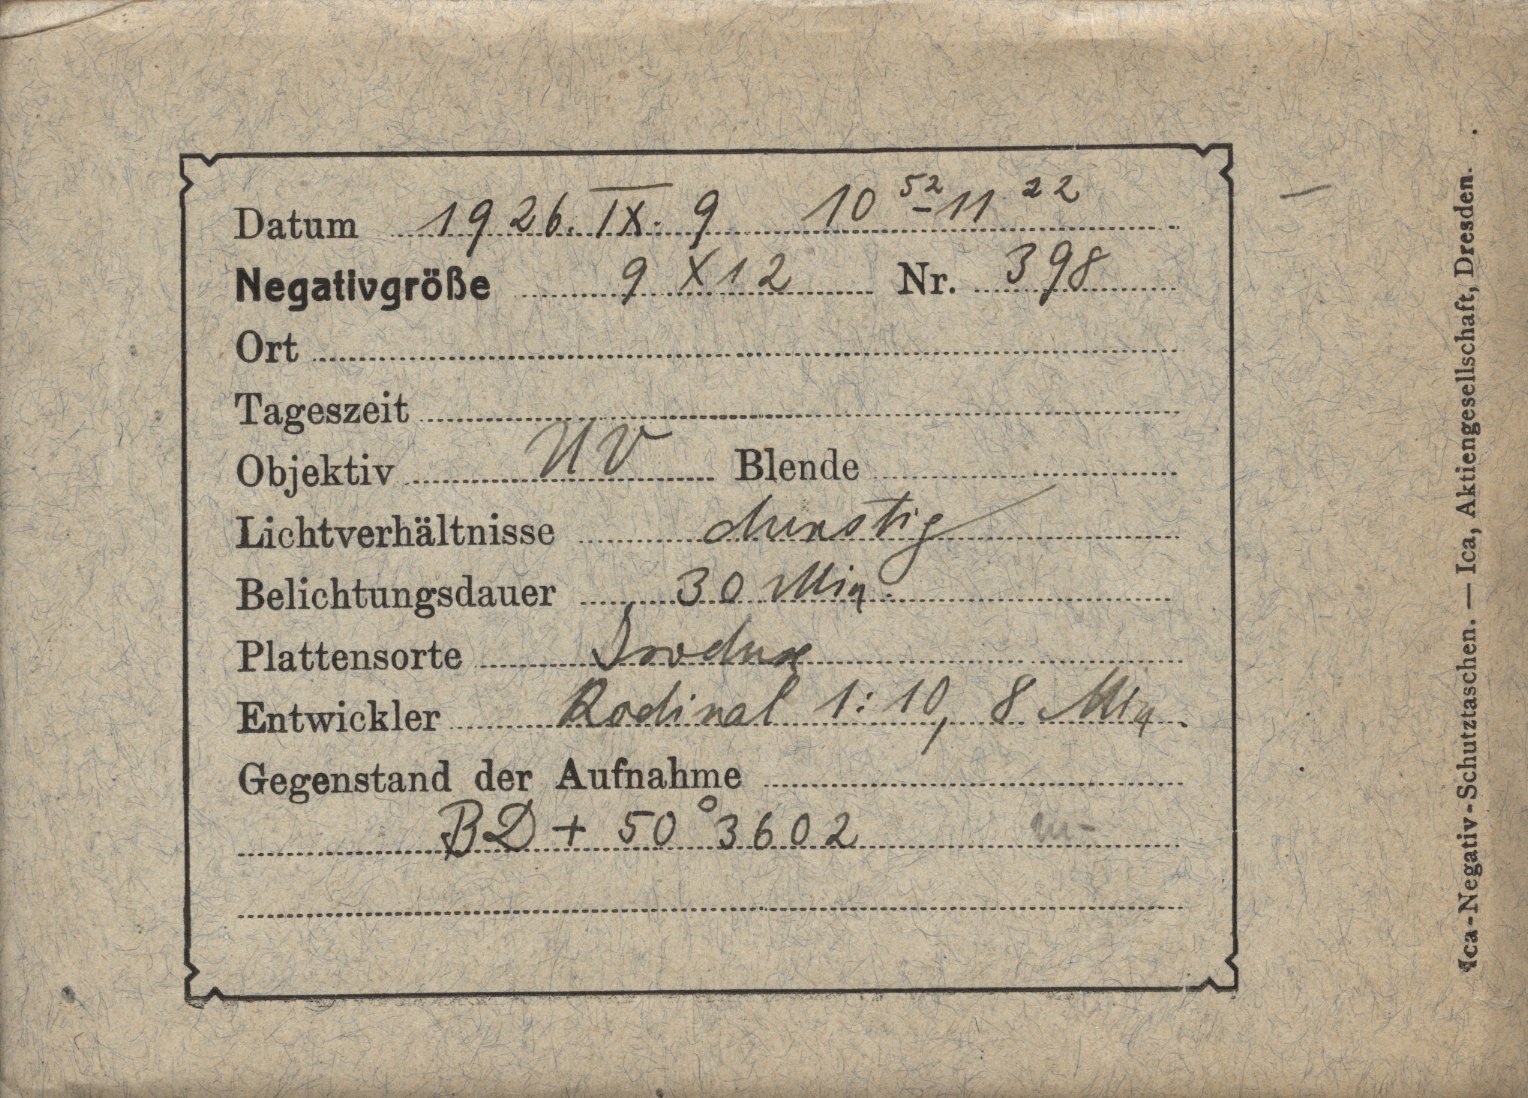 Datum 1926. IX. 9 10 52 - 11 22
Negativgröße 9 X 12 Nr. 398
Ort
Tageszeit
Objektiv UV Blende
Lichtverhältnisse dunstig
Belichtungsdauer 30 Min.
Plattensorte
Entwickler Rodinal 1:10, 8 Min.
Gegenstand der Aufnahme
BD + 50° 3602
Ica-Negativ-Schutztaschen. — Ica, Aktiengesellschaft, Dresden.